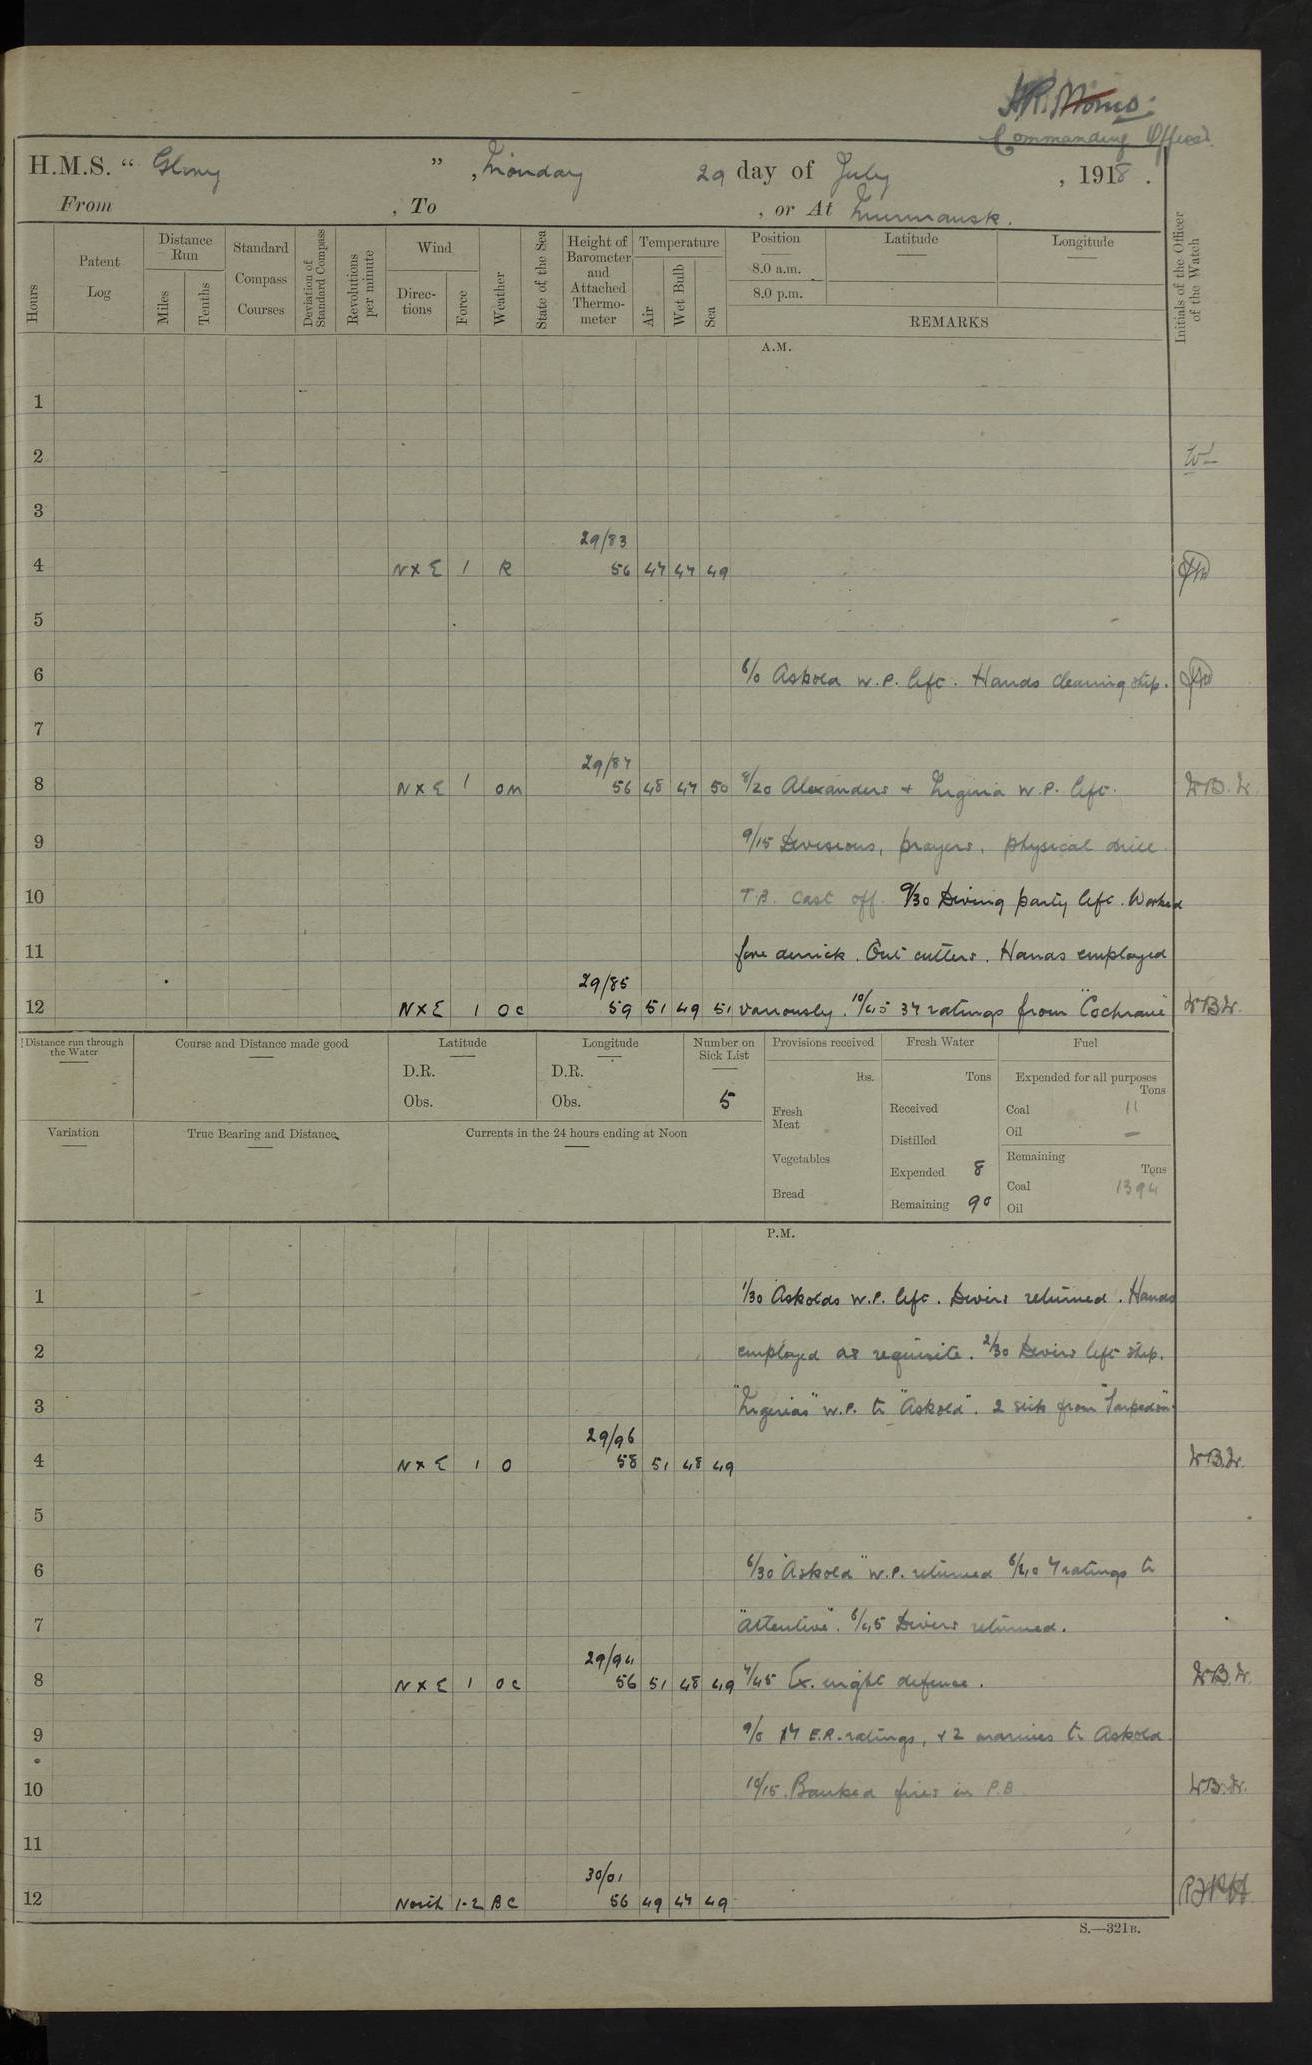 Commanding Officer.
H.M.S. “ Glory ” , Monday 29 day of July , 1918 .
From , To , or At Murmansk.
Hours
Patent Log
Distance Run
Miles
Tenths
Standard Compass Courses
Deviation of Standard Compass
Revolutions per minute
Wind
Directions
Force
Weather
State of the Sea
Height of Barometer and Attached Thermometer
Temperature
Air
Wet Bulb
Sea
Position
8.0 a.m.
8.0 p.m.
Latitude
Longitude
REMARKS
Initials of the Officer of the Watch
A.M.
1
2
3
29/83
4 N x E 1 R 56 47 47 49
5
6 6/0 Askold W.P. left. Hands cleaning ship.
7
29/87
8 N x E 1 OM 56 48 47 50 8/20 Alexanders + W.P. left. W.B.W.
9 9/15 Divisions, prayers, physical drill
10 T.B. cast off. 9/30 Diving party left. Worked
11 fore derrick. Out cutters. Hands employed
29/85
12 N x E 1 OC 59 51 49 51 variously. 10/45 37 ratings from "Cochrane" W.B.W.
Distance run through the Water
Course and Distance made good
Latitude
D.R.
Obs.
Longitude
D.R.
Obs.
Number on Sick List
5
Provisions received
lbs.
Fresh Meat
Vegetables
Bread
Fresh Water
Tons
Received
Distilled
Expended 8
Remaining 90
Fuel
Expended for all purposes
Tons
Coal 11
Oil —
Remaining
Tons
Coal 1394
Oil
Variation
True Bearing and Distance
Currents in the 24 hours ending at Noon
P.M.
1 1/30 Askolds W.P. left. Divers returned. Hands
2 employed as requisite. 2/30 Divers left ship.
3 W.P. to "Askold". 2 sick from
29/96
4 N x E 1 O 58 51 48 49 W.B.W.
5
6 6/30 "Askold" W.P. returned 6/40 7 ratings to
7 "Attentive". 6/45 Divers returned.
29/94
8 N x E 1 OC 56 51 48 49 7/45 Ex. night defence. W.B.W.
9 9/0 17 E.R. ratings, + 2 marines to Askold.
10 10/15. Banked fires in P.B. W.B.W.
11
30/01
12 North 1-2 BC 56 49 47 49
S.—321B.